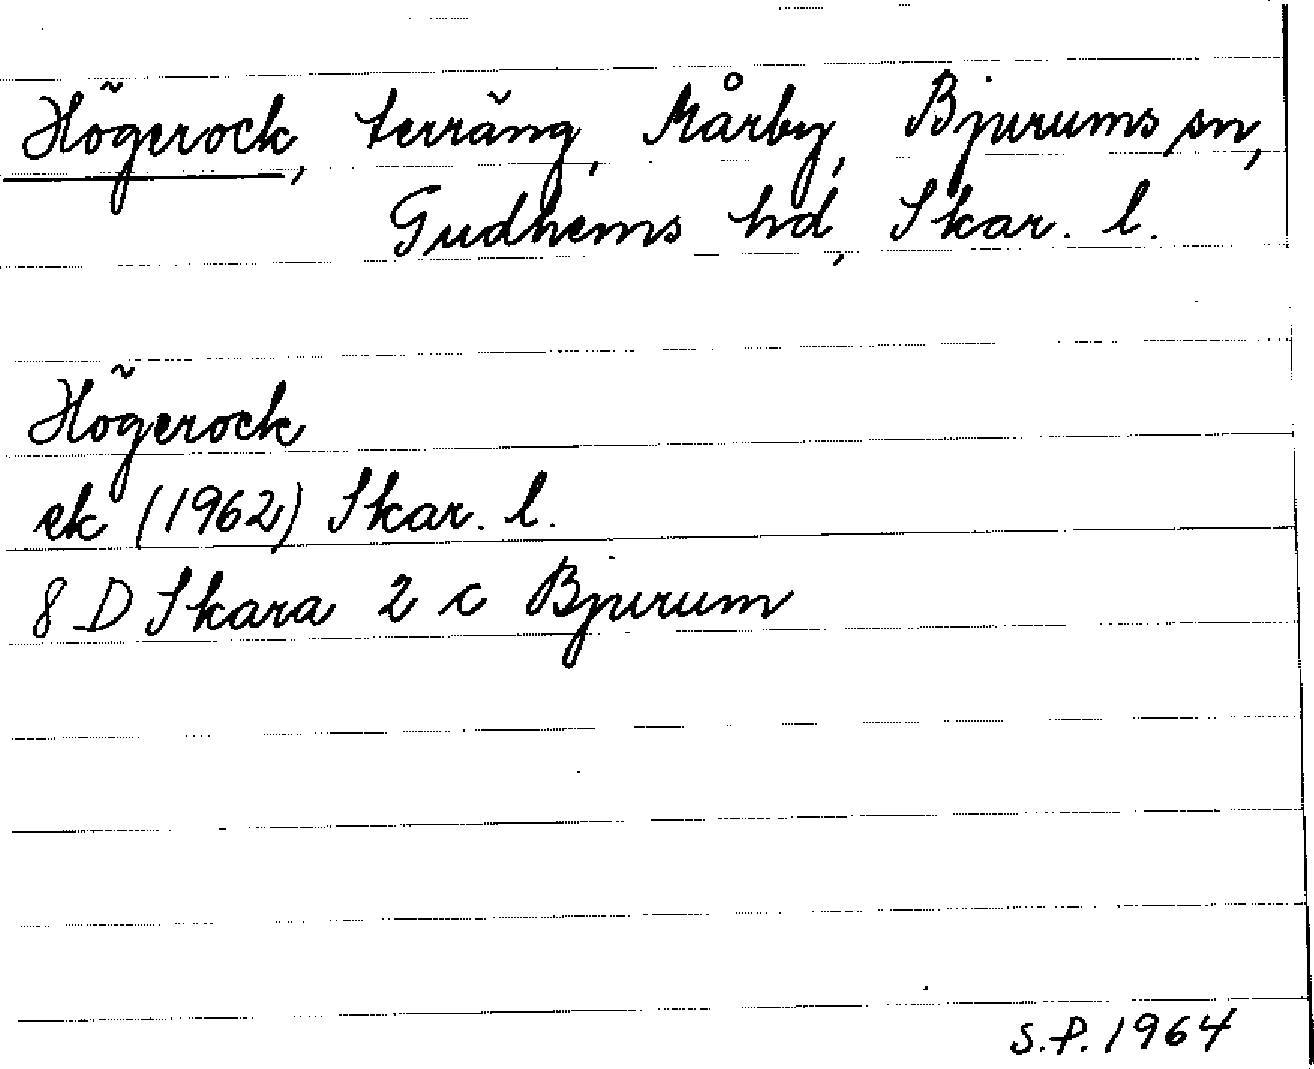 Högerock, terräng, Mårby, Bjurums sn,
Gudhems hd, Skar. l.
Högerock
ek (1962) Skar. l.
8 D Skara 2 c Bjurum
S.P. 1964